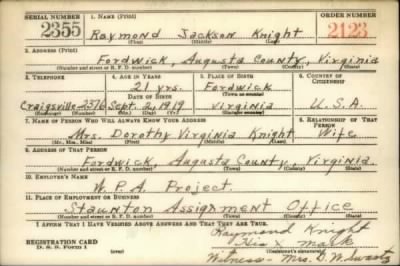 SERIAL NUMBER 1. NAME (Print) ORDER NUMBER
2355 Raymond Jackson Knight 2123
(First) (Middle) (Last)
2. ADDRESS (Print)
Fordwick, Augusta County, Virginia
(Number and street or R. F. D. number) (Town) (County) (State)
3. TELEPHONE 4. AGE IN YEARS 5. PLACE OF BIRTH 6. COUNTRY OF CITIZENSHIP
21 yrs. Fordwick
DATE OF BIRTH (Town or county)
Craigsville-2376 Sept. 2, 1919 Virginia U.S.A.
(Exchange) (Number) (Mo.) (Day) (Yr.) (State or country)
7. NAME OF PERSON WHO WILL ALWAYS KNOW YOUR ADDRESS 8. RELATIONSHIP OF THAT PERSON
Mrs. Dorothy Virginia Knight Wife
(Mr., Mrs., Miss) (First) (Middle) (Last)
9. ADDRESS OF THAT PERSON
Fordwick, Augusta County, Virginia
(Number and street or R. F. D. number) (Town) (County) (State)
10. EMPLOYER'S NAME
W.P.A. Project
11. PLACE OF EMPLOYMENT OR BUSINESS
Staunton Assignment Office
(Number and street or R. F. D. number) (Town) (County) (State)
I AFFIRM THAT I HAVE VERIFIED ABOVE ANSWERS AND THAT THEY ARE TRUE.
Raymond Knight
REGISTRATION CARD His X Mark
D. S. S. Form 1 (Registrant's signature)
Witness - Mrs. D. W. Swartz